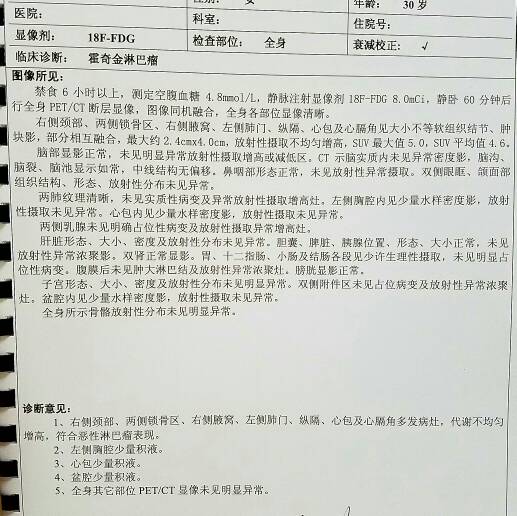 性别： 女 年龄： 30 岁
医院： 科室： 住院号：
显像剂： 18F-FDG 检查部位： 全身 衰减校正： √
临床诊断： 霍奇金淋巴瘤
图像所见：
禁食 6 小时以上，测定空腹血糖 4.8mmol/L，静脉注射显像剂 18F-FDG 8.0mCi，静卧 60 分钟后
行全身 PET/CT 断层显像，图像同机融合，全身各部位显像清晰。
右侧颈部、两侧锁骨区、右侧腋窝、左侧肺门、纵隔、心包及心膈角见大小不等软组织结节、肿
块影，部分相互融合，最大约 2.4cmx4.0cm，放射性摄取不均匀增高，SUV 最大值 5.0，SUV 平均值 4.6。
脑部显影正常，未见明显异常放射性摄取增高或减低区。CT 示脑实质内未见异常密度影，脑沟、
脑裂、脑池显示如常，中线结构无偏移。鼻咽部形态正常，未见放射性异常摄取。双侧眼眶、颌面部
组织结构、形态、放射性分布未见异常。
两肺纹理清晰，未见实质性病变及异常放射性摄取增高灶。左侧胸腔内见少量水样密度影，放射
性摄取未见异常。心包内见少量水样密度影，放射性摄取未见异常。
两侧乳腺未见明确占位性病变及放射性摄取异常增高灶。
肝脏形态、大小、密度及放射性分布未见异常。胆囊、脾脏、胰腺位置、形态、大小正常，未见
放射性异常浓聚影。双肾正常显影。胃、十二指肠、小肠及结肠各段见少许生理性摄取，未见明显占
位性病变。腹膜后未见肿大淋巴结及放射性异常浓聚灶。膀胱显影正常。
子宫形态、大小、密度及放射性分布未见明显异常。双侧附件区未见占位病变及放射性异常浓聚
灶。盆腔内见少量水样密度影，放射性摄取未见异常。
全身所示骨骼放射性分布未见明显异常。
诊断意见：
1、右侧颈部、两侧锁骨区、右侧腋窝、左侧肺门、纵隔、心包及心膈角多发病灶，代谢不均匀
增高，符合恶性淋巴瘤表现。
2、左侧胸腔少量积液。
3、心包少量积液。
4、盆腔少量积液。
5、全身其它部位 PET/CT 显像未见明显异常。